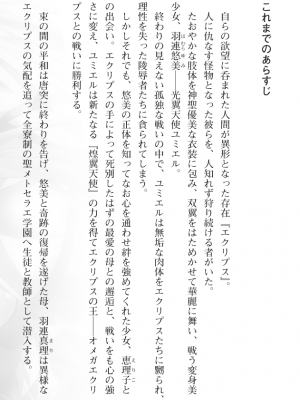 これまでのあらすじ
自らの欲望に呑まれた人間が異形となった存在『エクリプス』。
人に仇なす怪物となった彼らを、人知れず狩り続ける者がいた。
たおやかな肢体を神聖優美な衣装に包み、双翼をはためかせて華麗に舞い、戦う変身美
少女、羽連悠美――光翼天使ユミエル。
終わりの見えない孤独な戦いの中で、ユミエルは無垢な肉体をエクリプスたちに嬲られ、
理性を失った陵辱者たちに貪られてしまう。
しかしそれでも、悠美の正体を知ってなお心を通わせ絆を強めてくれた少女、恵理子と
の出会い。エクリプスの手によって死別したはずの最愛の母との邂逅と、戦いをも心の強
さに変え、ユミエルは新たなる『煌翼天使』の力を得てエクリプスの王――オメガエクリ
プスとの戦いに勝利する。
束の間の平和は唐突に終わりを告げ、悠美と奇跡の復帰を遂げた母、羽連真理は異様な
エクリプスの気配を追って全寮制の聖メトセラエ学園へ生徒と教師として潜入する。